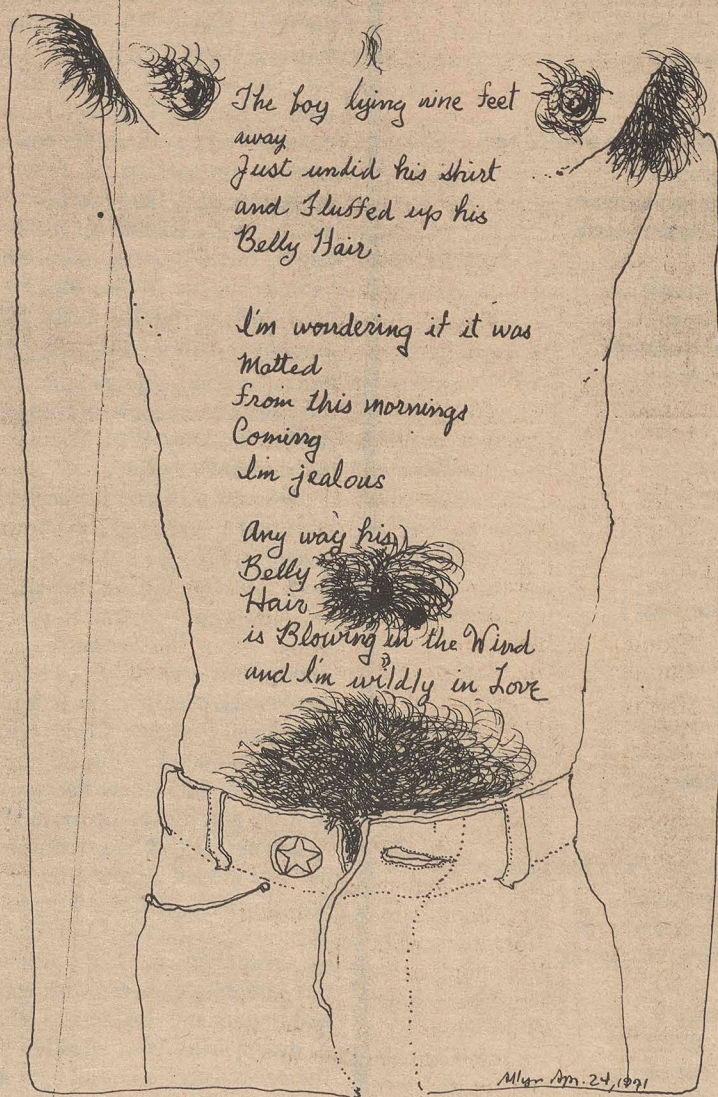 The boy lying nine feet
away
Just undid his shirt
and Fluffed up his
Belly Hair
I'm wondering if it was
Matted
from this mornings
Coming
I'm jealous
Any way his
Belly
Hair
is Blowing in the Wind
and I'm wildly in Love
Apr. 24, 1971